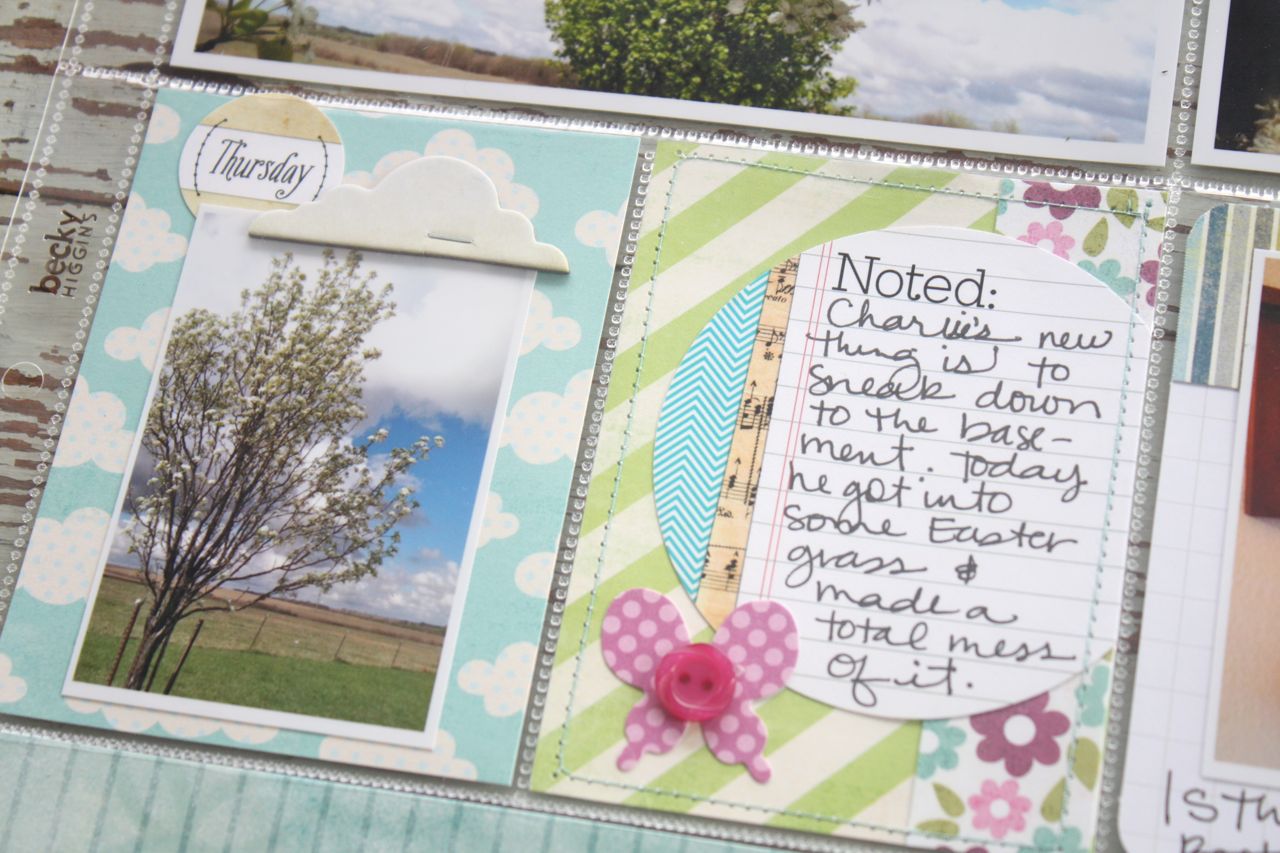 Thursday
becky
HIGGINS
Noted:
Charlie's new
thing is to
sneak down
to the base-
ment. Today
he got into
some Easter
grass &
made a
total mess
of it.